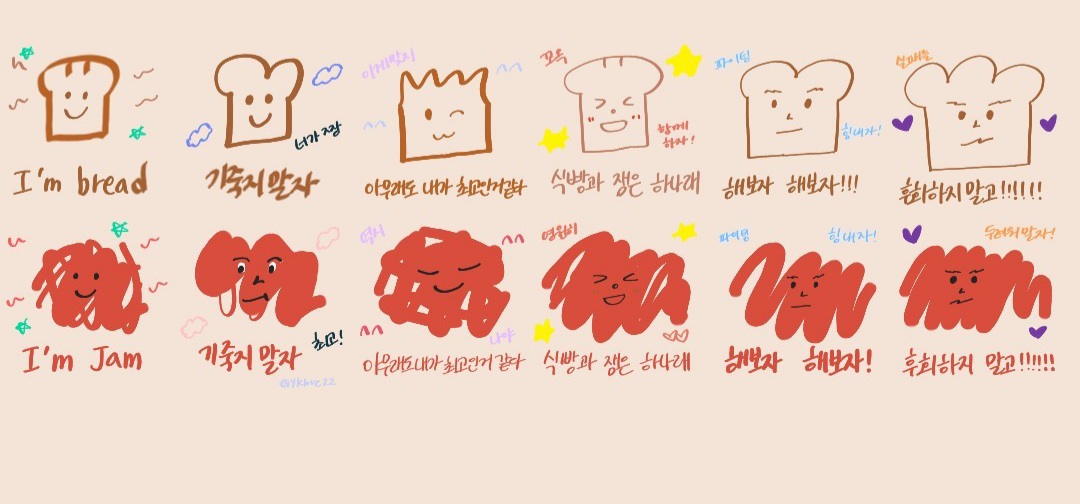 이게맞지
꼬옥
파이팅
너가 짱
함께
하자!
힘내자!
I'm bread
기죽지 말자
아무래도 내가 최고인거같다
식빵과 잼은 하나래
해보자 해보자!!!
후회하지 말고!!!!!!
역시
영원히
파이팅
힘내자!
두려워 말자!
최고!
나야
I'm Jam
기죽지 말자
아무래도 내가 최고인거 같다
식빵과 잼은 하나래
해보자 해보자!
후회하지 말고!!!!!!